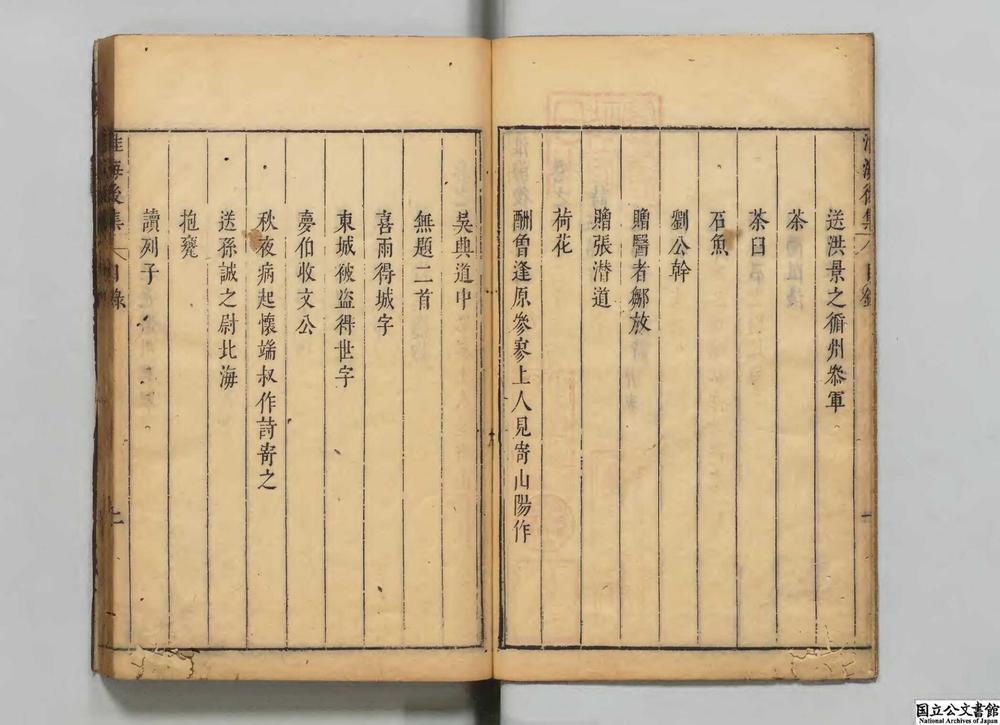 淮海後集 目錄 一
送洪景之循州叅軍
茶
茶臼
石魚
劉公幹
贈醫者鄒放
贈張潜道
荷花
酬魯逢原參寥上人見寄山陽作
吳興道中
無題二首
喜雨得城字
東城被盗得世字
夢伯收文公
秋夜病起懷端叔作詩寄之
送孫誠之尉北海
抱甕
讀列子
淮海後集 目錄 二
国立公文書館
National Archives of Japan